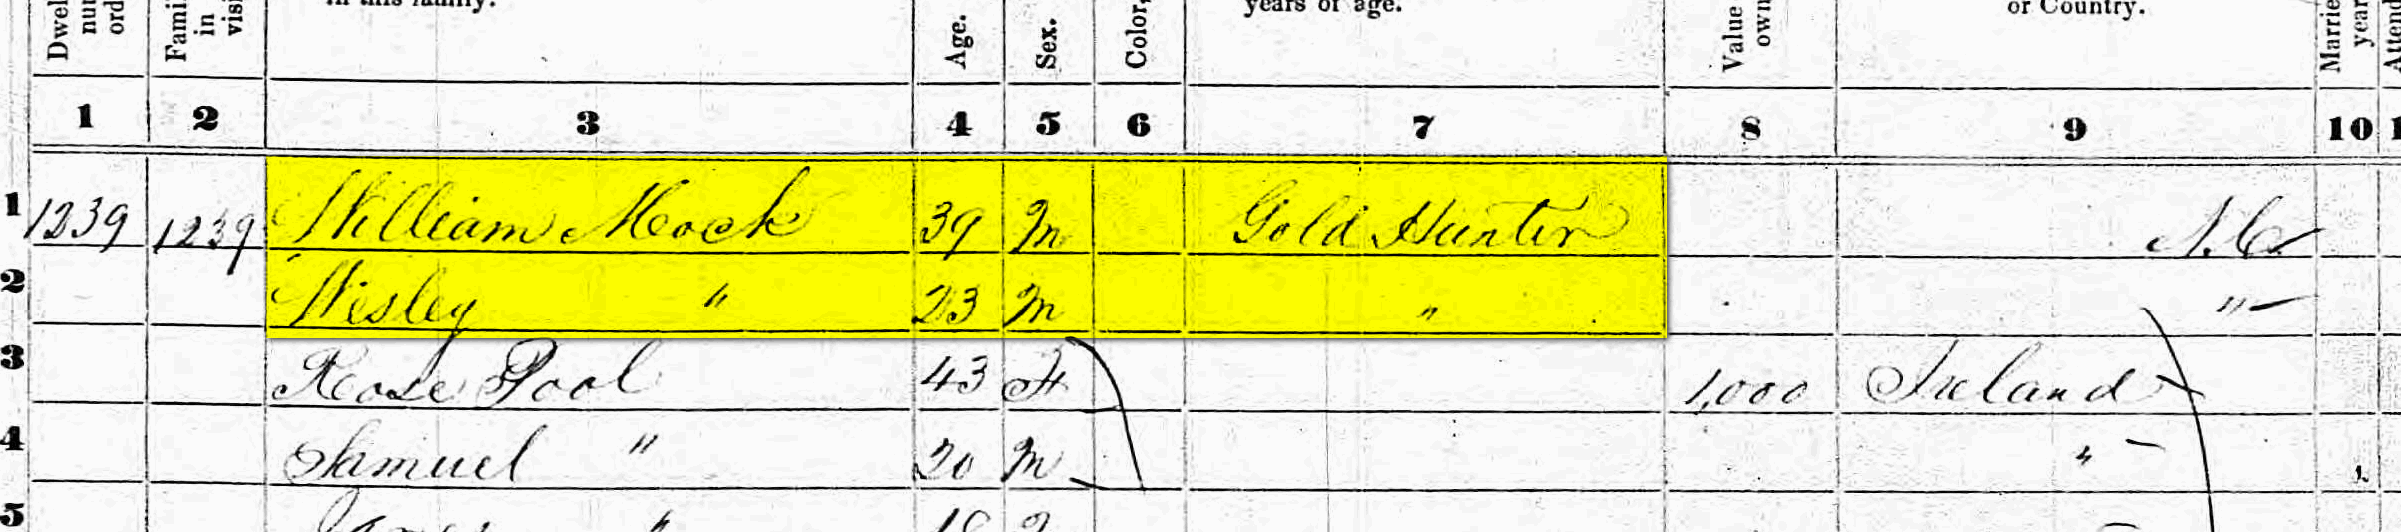 in this family. years of age. or Country.
Dwel Famil Age. Sex. Color, Value Marrie Atten
nu in own year
ord visi
1 2 3 4 5 6 7 8 9 10 1
1 1239 1239 William Mock 39 M Gold Hunter N.C.
2 Wesley " 23 M " "
3 Rose Pool 43 F 1,000 Ireland
4 Samuel " 20 M " 1
5 "